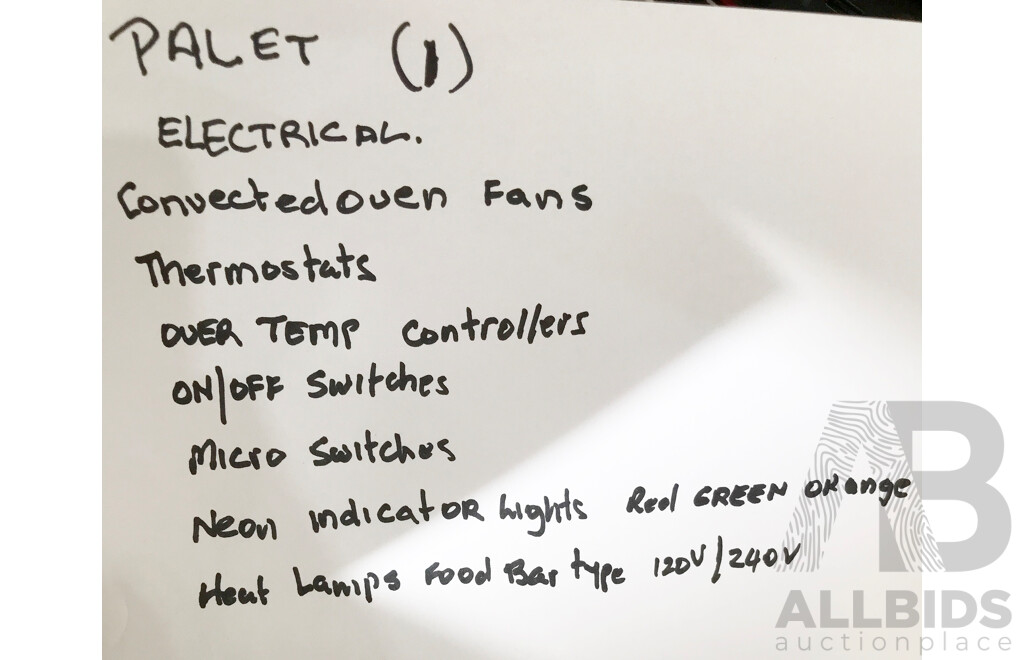 PALET (1)
ELECTRICAL.
Convectedoven Fans
Thermostats
OVER TEMP Controllers
ON/OFF Switches
Micro Switches
Neon indicatOR Lights Red GREEN ORange
Heat Lamps Food Bar type 120V/240V
AB
ALLBIDS
auctionplace